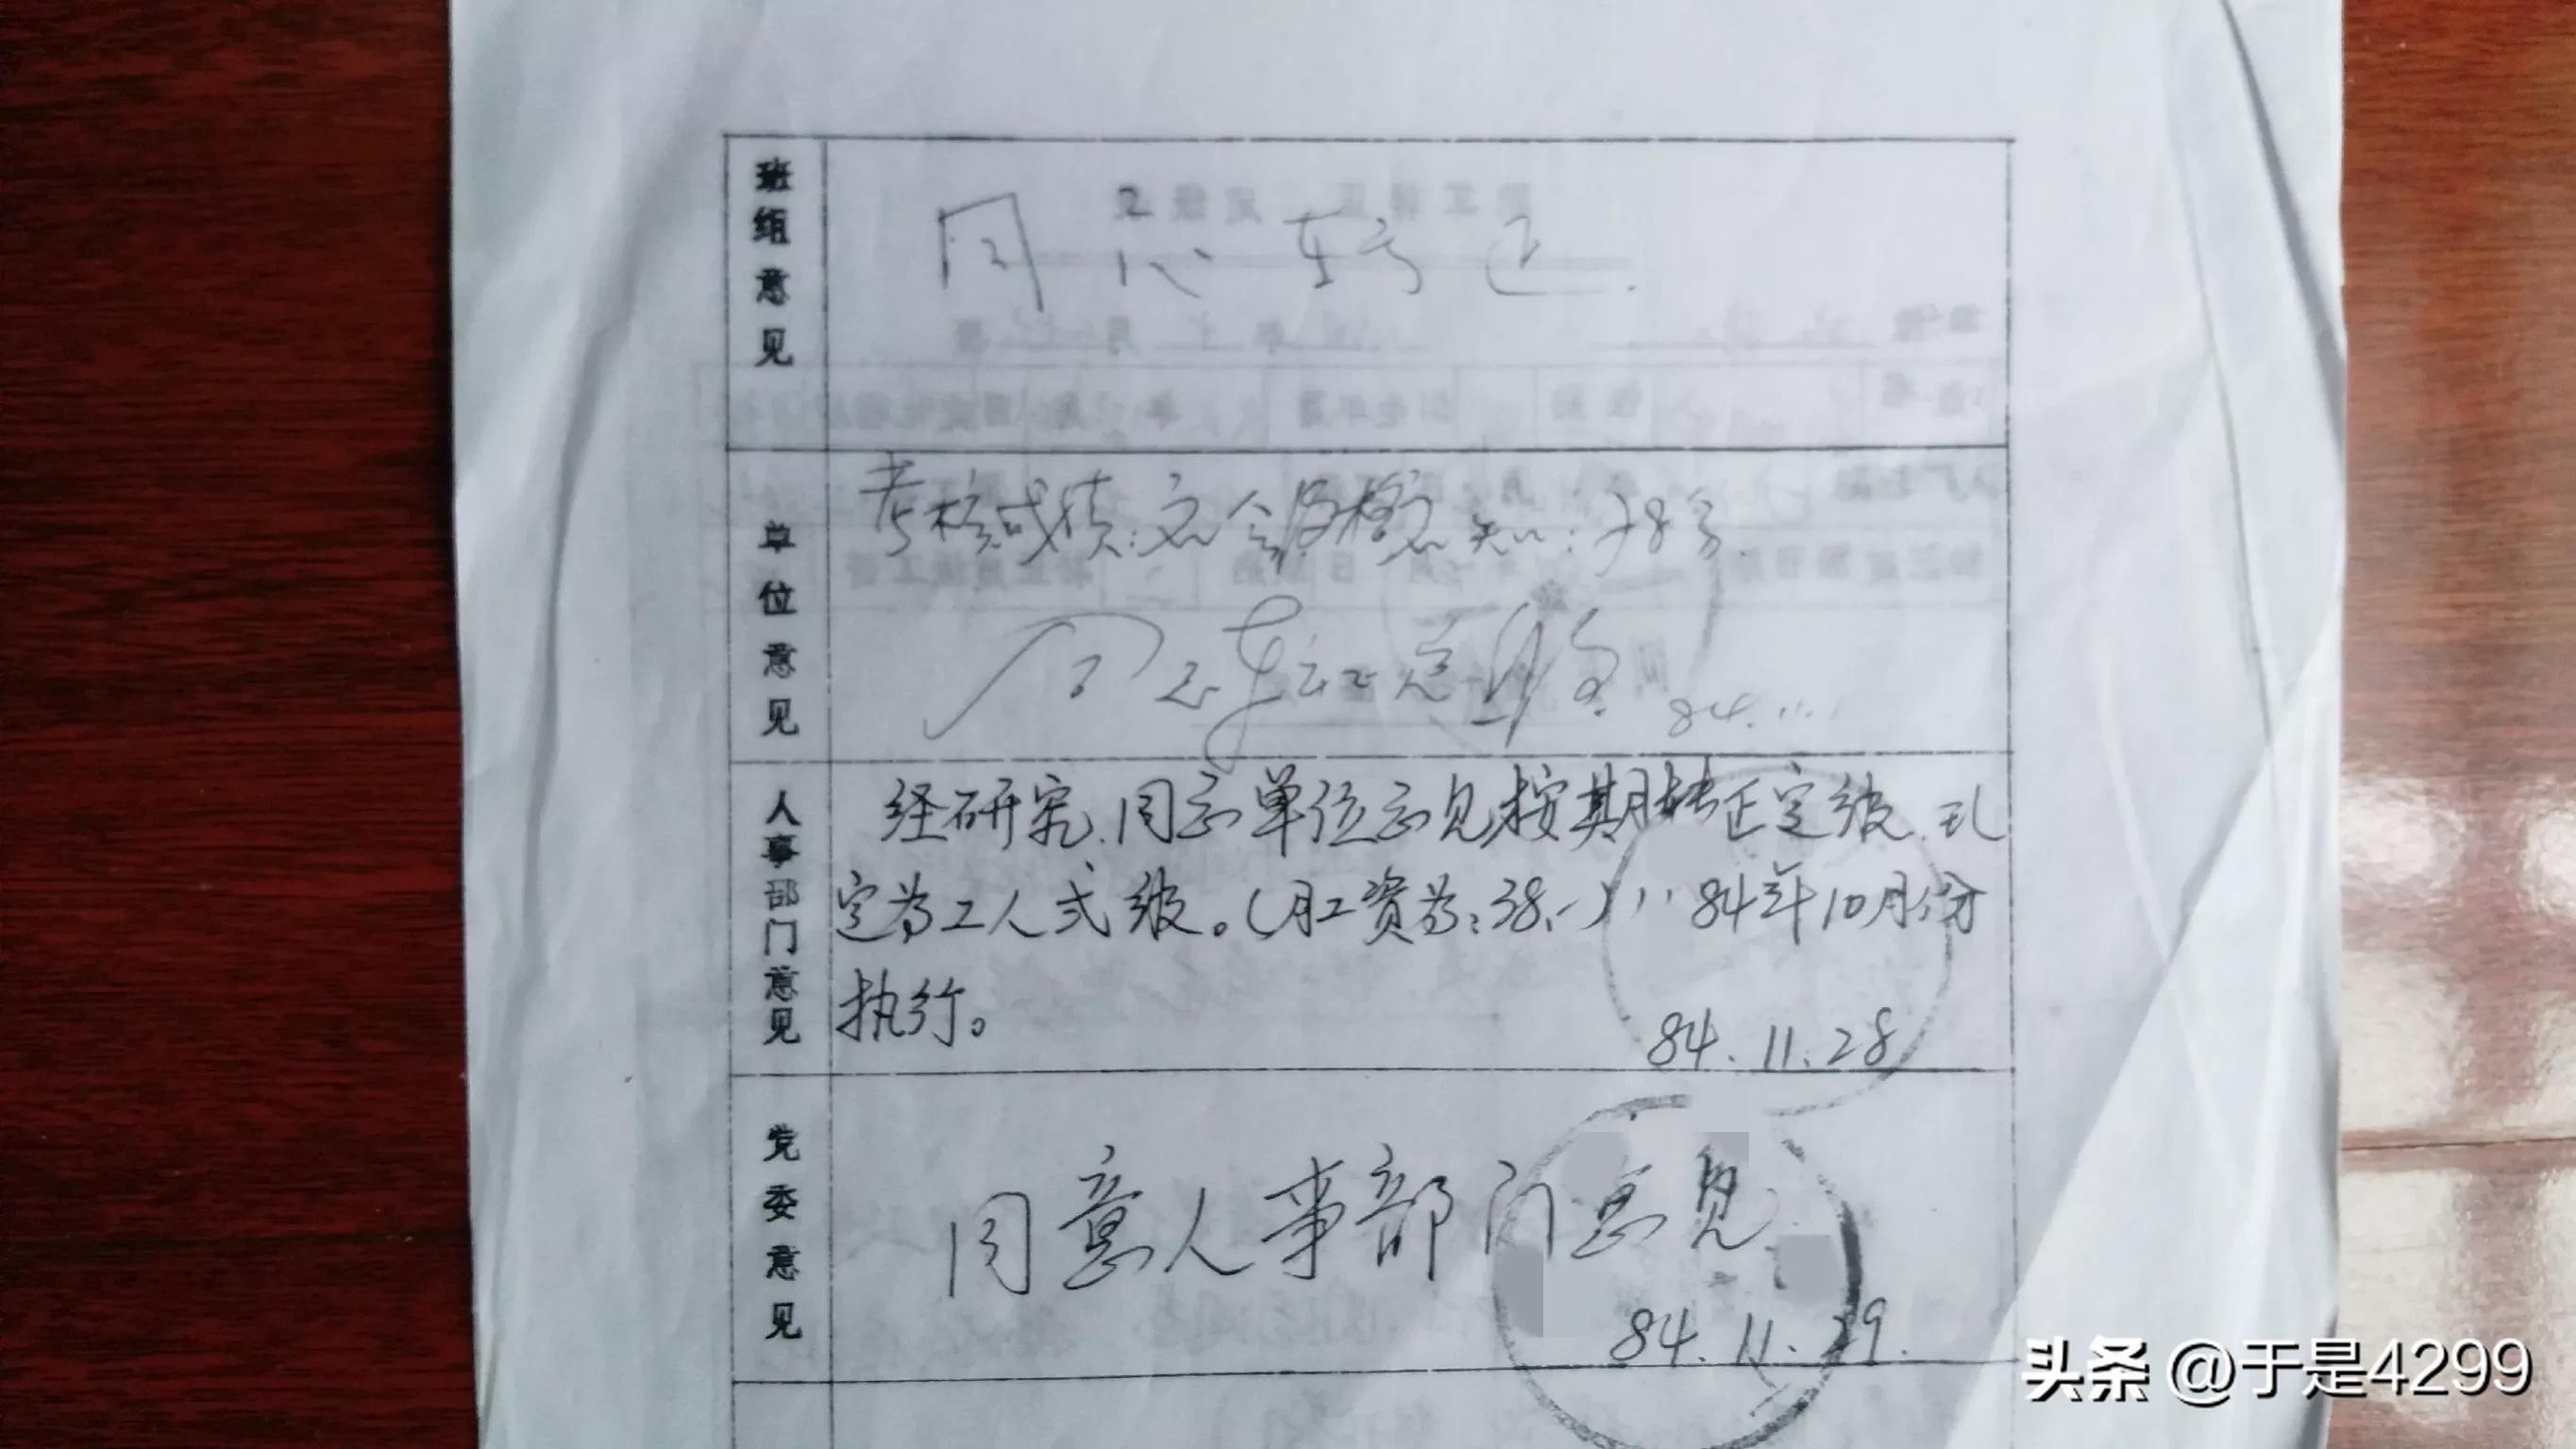 班组意见
同意转正.
单位意见
考核成绩:安全 知:78分.
同意转正定级. 84.11.
人事部门意见
经研究.同意单位意见按期转正定级.
定为工人式级。(月工资为:38.-) 84年10月份
执行。
84.11.28
党委意见
同意人事部门意见
84.11.29.
头条 @于是4299